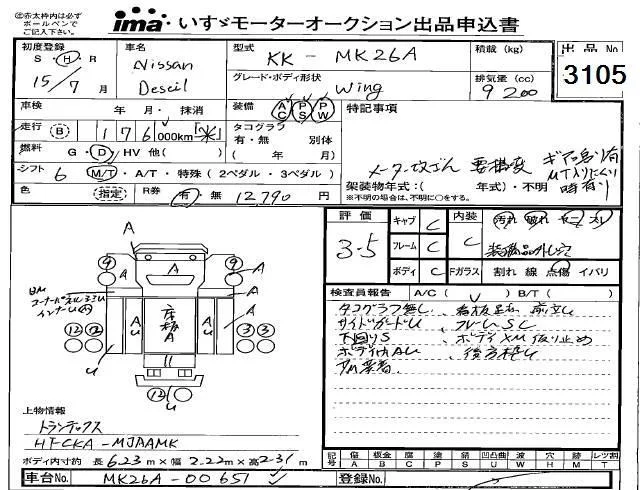 ㊟赤太枠内は必ず
ボールペンで
ご記入下さい。
ima いすゞモーターオークション出品申込書
初度登録 車名 型式 積載(kg) 出品No
S・H・R Nissan KK - MK26A 3105
15/7月 Desell グレード・ボディ形状 Wing 排気量(cc) 9200
車検 年 月・抹消 装備 AC PS PW 特記事項
走行 (B) 176,000km「※」 タコグラフ 有・無 別体
燃料 G・D・HV 他( ) ( 年 月)
メーター改ざん 要構変 ギア鳴り有
MT入りにくい
時有り
シフト 6 M/T・A/T・特殊(2ペダル・3ペダル) 架装物年式:( 年式)・不明
※不明の場合は、不明に○をする。
色 (指定) R券 有・無 12790円
評価 3-5 キャブ C 内装 C 汚れ 破れ ヤニ スレ
フレーム C
ボディ C Fガラス 割れ 線 点傷 イバリ
検査員報告 A/C( ) B/T( )
タコグラフ無し、
サイドガードU、フレームSC
下回りS、ボディXM仮り止め
ボディ内AU、後方枠U
A A A A A A
⑨ ⑨
コーナーパネル33U
インナーU
AU 床板A AU
⑫ ⑫ ③ ③
U ⑫ U
上物情報
トランテックス
HT-CKA-MJAAMK
ボディ内寸約 長 6.23m×幅 2.22m×高 2.31m
記号 傷 板金 腐 塗 錆 凹凸曲 波 穴 目 レツ割
A B C P S U W H M T
車台No. MK26A-00651 登録No.